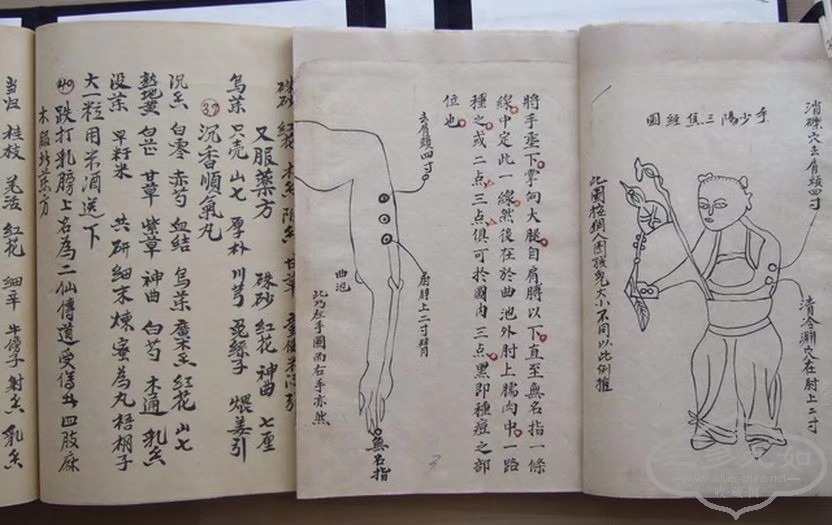 消礫穴去肩頭四寸
手少陽三焦經圖
清冷淵穴在肘上二寸
此圖按銅人圖孩兒大小不同以此例推
將手垂下掌向大腿自肩膊以下直至無名指一條
線中定此一線然後在於曲池外肘上臑肉中一路
種之或二点三点俱可於圖內三点黑即種痘之部
位也
去肩頭四寸
肘上二寸臂
曲池
此乃左手圖而右手亦然
無名指
硃砂 紅花
甘草
又服藥方 硃砂 紅花 神曲 七厘
烏藥 只壳 山七 厚朴 川芎 兎絲子 煨姜引
37 沉香順氣丸
沉香 白零 赤芍 血結 烏藥 廣木香 紅花 山七
熟地黄 白芷 甘草 紫草 神曲 白芍 木通 乳香
没藥 早籽米 共研細末煉蜜為丸梧桐子
大一粒用米酒送下
40 跌打乳膀上名為二仙傳道受傷 四肢麻
木服此藥方
当归 桂枝 羌活 紅花 細辛 牛蒡子 射香 乳香